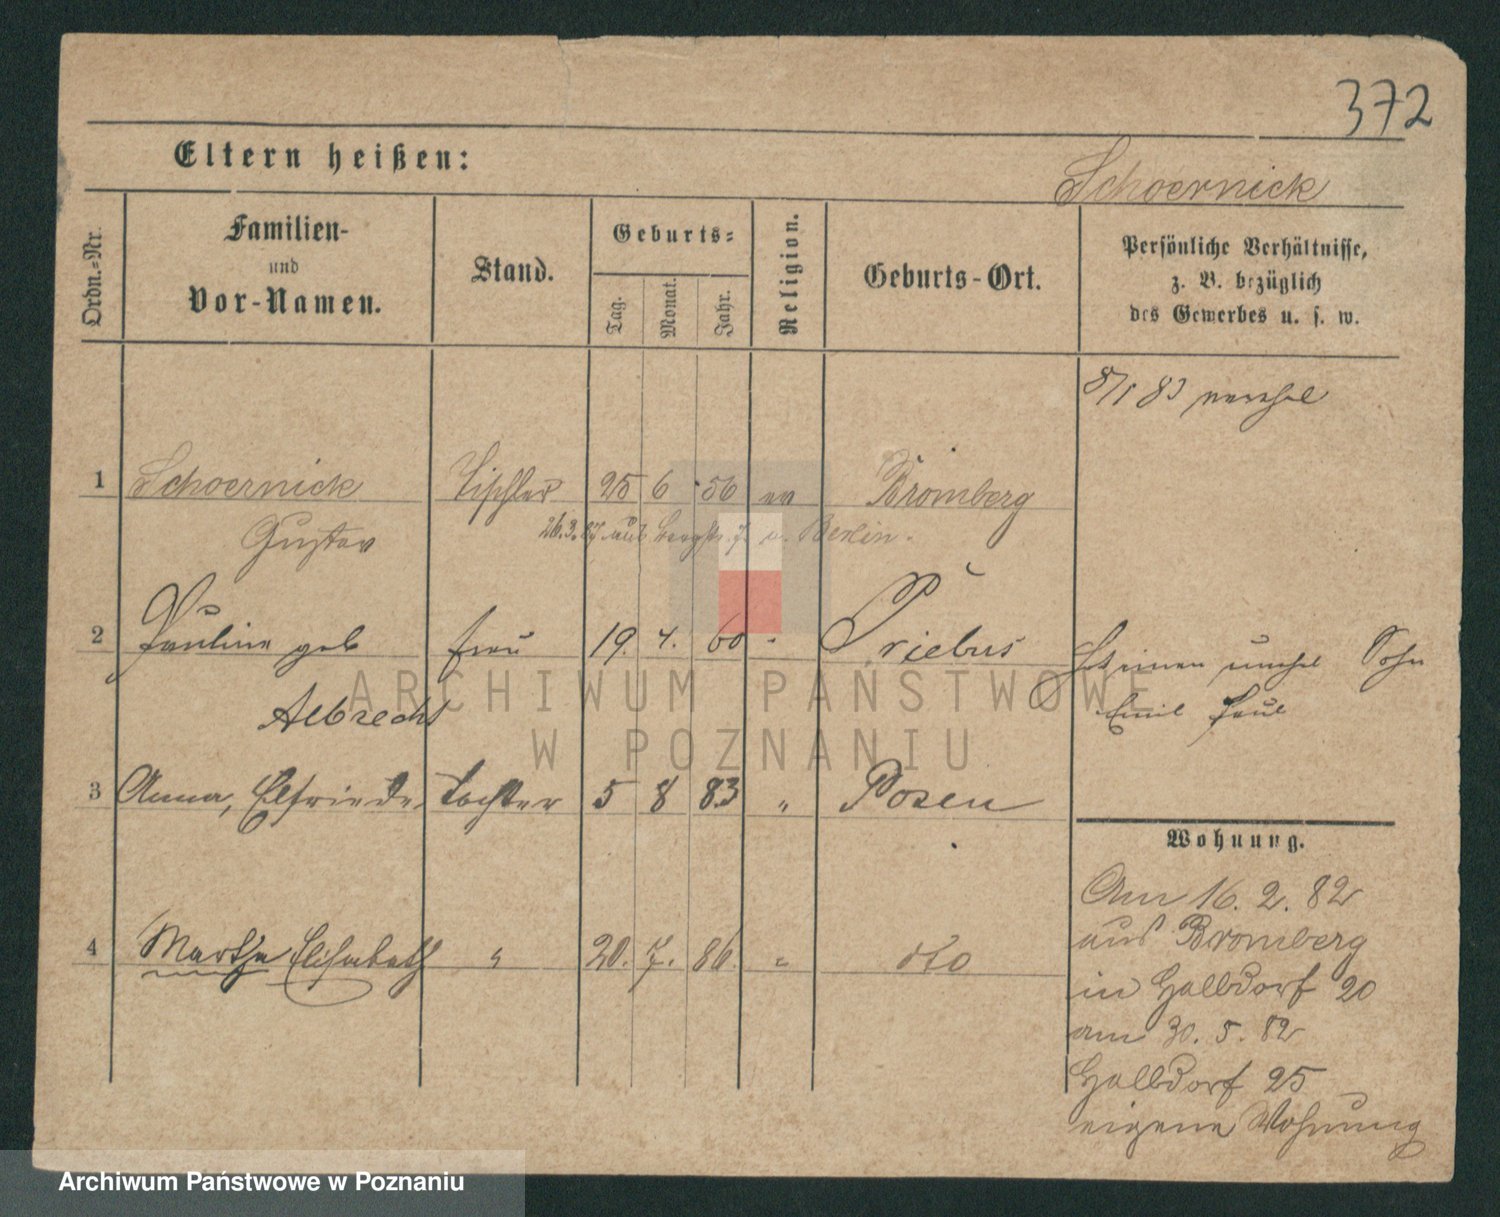 372
Eltern heißen:
Schoernick
Ordn.-Nr.
Familien-
und
Vor-Namen.
Stand.
Geburts-
Tag.
Monat.
Jahr.
Religion.
Geburts-Ort.
Persönliche Verhältnisse,
z. B. bezüglich
des Gewerbes u. s. w.
8/1 83
1 Schoernick Tischler 25 6 56 ev Bromberg
Gustav
26.3.87 aus Bergstr. 7. n. Berlin.
2 Pauline geb Frau 19. 4. 60 " Priebus
Hat einen unehel Sohn
Albrecht
Emil Paul
ARCHIWUM PAŃSTWOWE
W POZNANIU
3 Anna, Elfriede Tochter 5 8 83 " Posen
Wohnung.
4 Martha Elisabeth " 20. 7. 86. " dto
Am 16. 2. 82
aus Bromberg
in Halbdorf 20
am 30. 5. 82
Halbdorf 25
eigene Wohnung
Archiwum Państwowe w Poznaniu